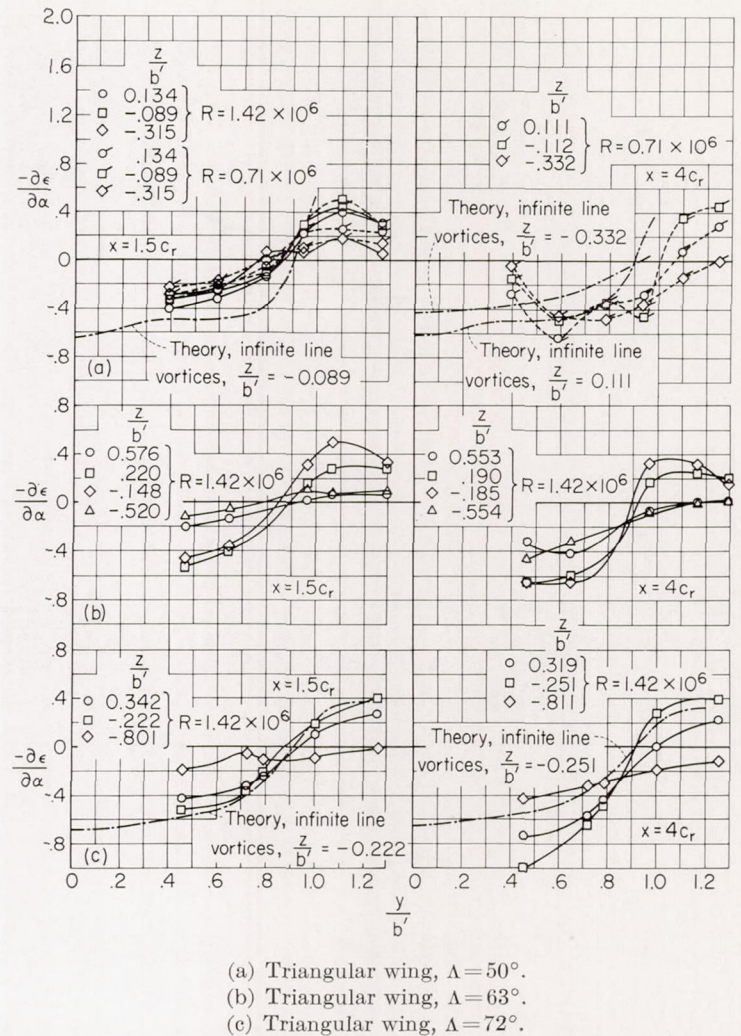 2.0
1.6
1.2
.8
.4
0
-.4
-.8
-∂ϵ/∂α
z/b'
0.134
-.089
-.315
R = 1.42 × 10⁶
.134
-.089
-.315
R = 0.71 × 10⁶
x = 1.5cᵣ
Theory, infinite line
vortices, z/b' = -0.089
(a)
z/b'
0.111
-.112
-.332
R = 0.71 × 10⁶
x = 4cᵣ
Theory, infinite line
vortices, z/b' = -0.332
Theory, infinite line
vortices, z/b' = 0.111
.8
.4
0
-.4
-.8
-∂ϵ/∂α
z/b'
0.576
.220
-.148
-.520
R = 1.42 × 10⁶
x = 1.5cᵣ
(b)
z/b'
0.553
.190
-.185
-.554
R = 1.42 × 10⁶
x = 4cᵣ
.8
.4
0
-.4
-.8
-∂ϵ/∂α
z/b'
0.342
-.222
-.801
R = 1.42 × 10⁶
x = 1.5cᵣ
Theory, infinite line
vortices, z/b' = -0.222
(c)
z/b'
0.319
-.251
-.811
R = 1.42 × 10⁶
Theory, infinite line
vortices, z/b' = -0.251
x = 4cᵣ
0 .2 .4 .6 .8 1.0 1.2 0 .2 .4 .6 .8 1.0 1.2
y/b'
(a) Triangular wing, Λ=50°.
(b) Triangular wing, Λ=63°.
(c) Triangular wing, Λ=72°.